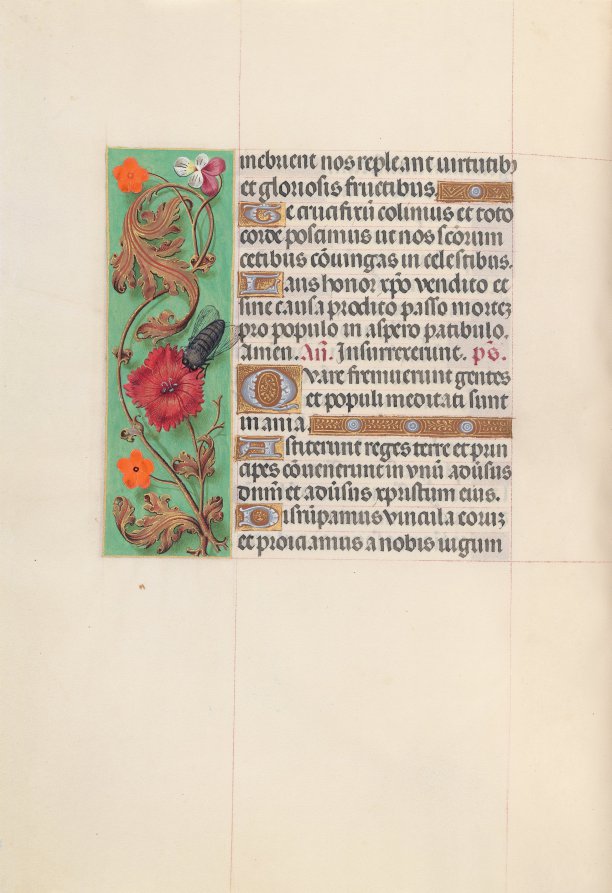 inebrient nos repleant uirtutib
et gloriosis fructibus.
Te crucifixū colimus et toto
corde poscimus ut nos scorum
cetibus cōiungas in celestibus.
Laus honor xpo vendito et
sine causa prodito passo mortez
pro populo in aspero patibulo.
Amen. Añ. Insurrexerunt. ps.
Quare fremuerunt gentes
et populi meditati sunt
inania.
Astiterunt reges terre et prin
cipes cōuenerunt in vnū adūsus
dnm̄ et adūsus xpristum eius.
Disrūpamus vincula eoruz
et proiciamus a nobis iugum